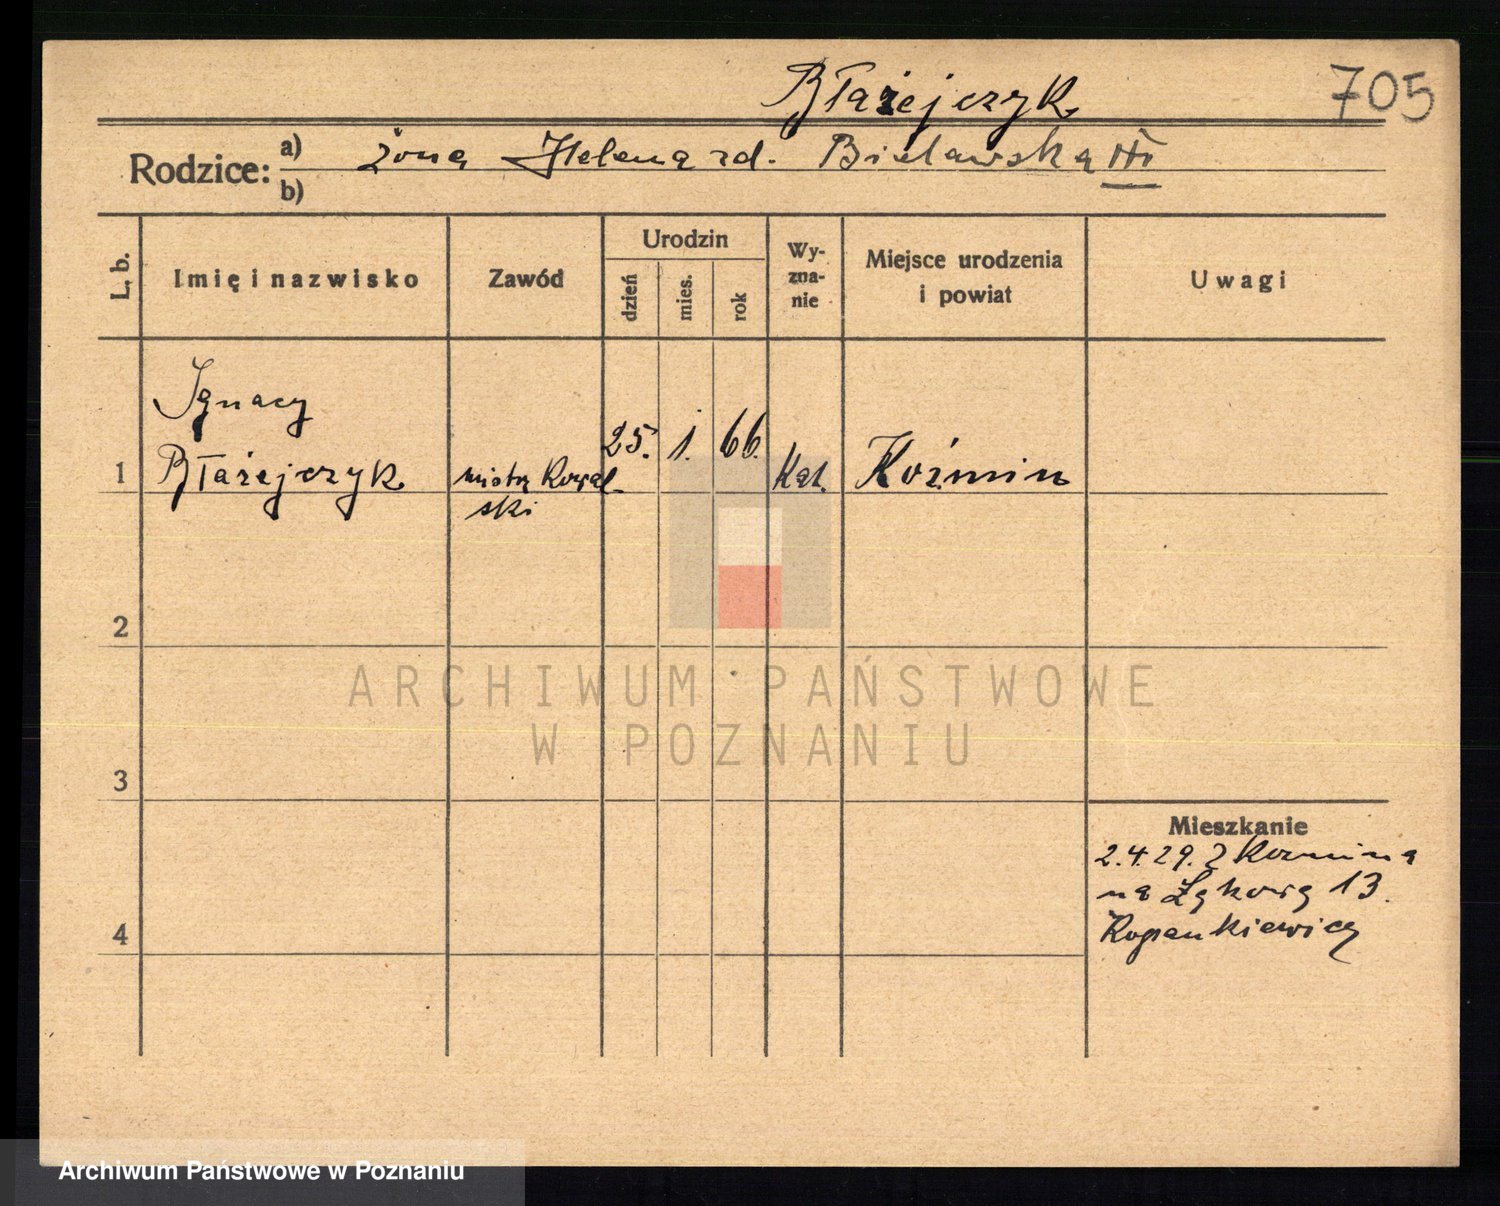 705
Błażejczyk
Rodzice: a) żona Helena zd. Bielawska
b)
L. b. Imię i nazwisko Zawód Urodzin dzień mies. rok Wyznanie Miejsce urodzenia i powiat Uwagi
Ignacy
1 Błażejczyk mistrz Kowal- 25. 1. 66. Kat. Koźmin
ski
2
ARCHIWUM PAŃSTWOWE
W POZNANIU
3
Mieszkanie
2.4.29. z Kozmina
na Łąkową 13.
4
Archiwum Państwowe w Poznaniu